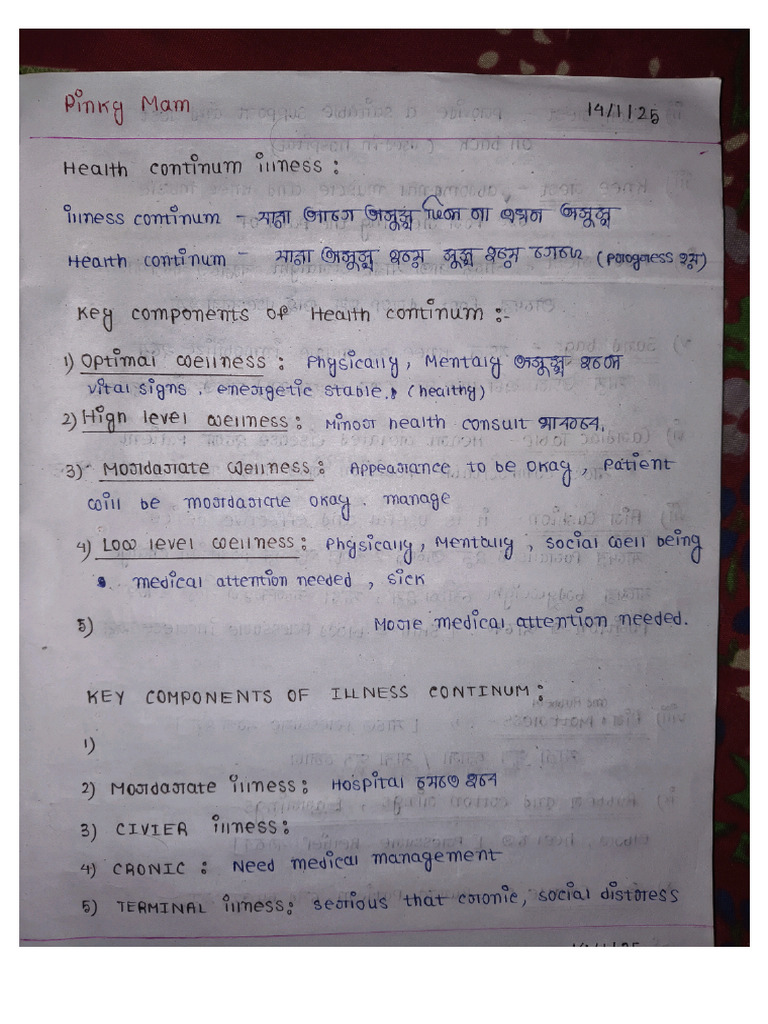 Pinky Mam
14/1/25
Health continum illness :
illness continum - যারা আগে অসুস্থ ছিল না এখন অসুস্থ
Health continum - যারা অসুস্থ হয়ে সুস্থ হয়ে গেছে (progress হয়)
Key components of Health continum :-
1) Optimal wellness : Physically, Mentaly অসুস্থ হলে
vital signs . energetic stable. (healthy)
2) High level wellness : Minor health consult থাকবে.
3) Mordarate wellness : Appearance to be okay, Patient
will be mordarate okay . manage
4) Low level wellness : Physically, Mentally, social well being
medical attention needed, sick
5) More medical attention needed.
KEY COMPONENTS OF ILLNESS CONTINUM :
1)
2) Mordarate illness : Hospital যেতে হবে
3) CIVIER illness :
4) CRONIC : Need medical management
5) TERMINAL illness : serious that cronic, social distress